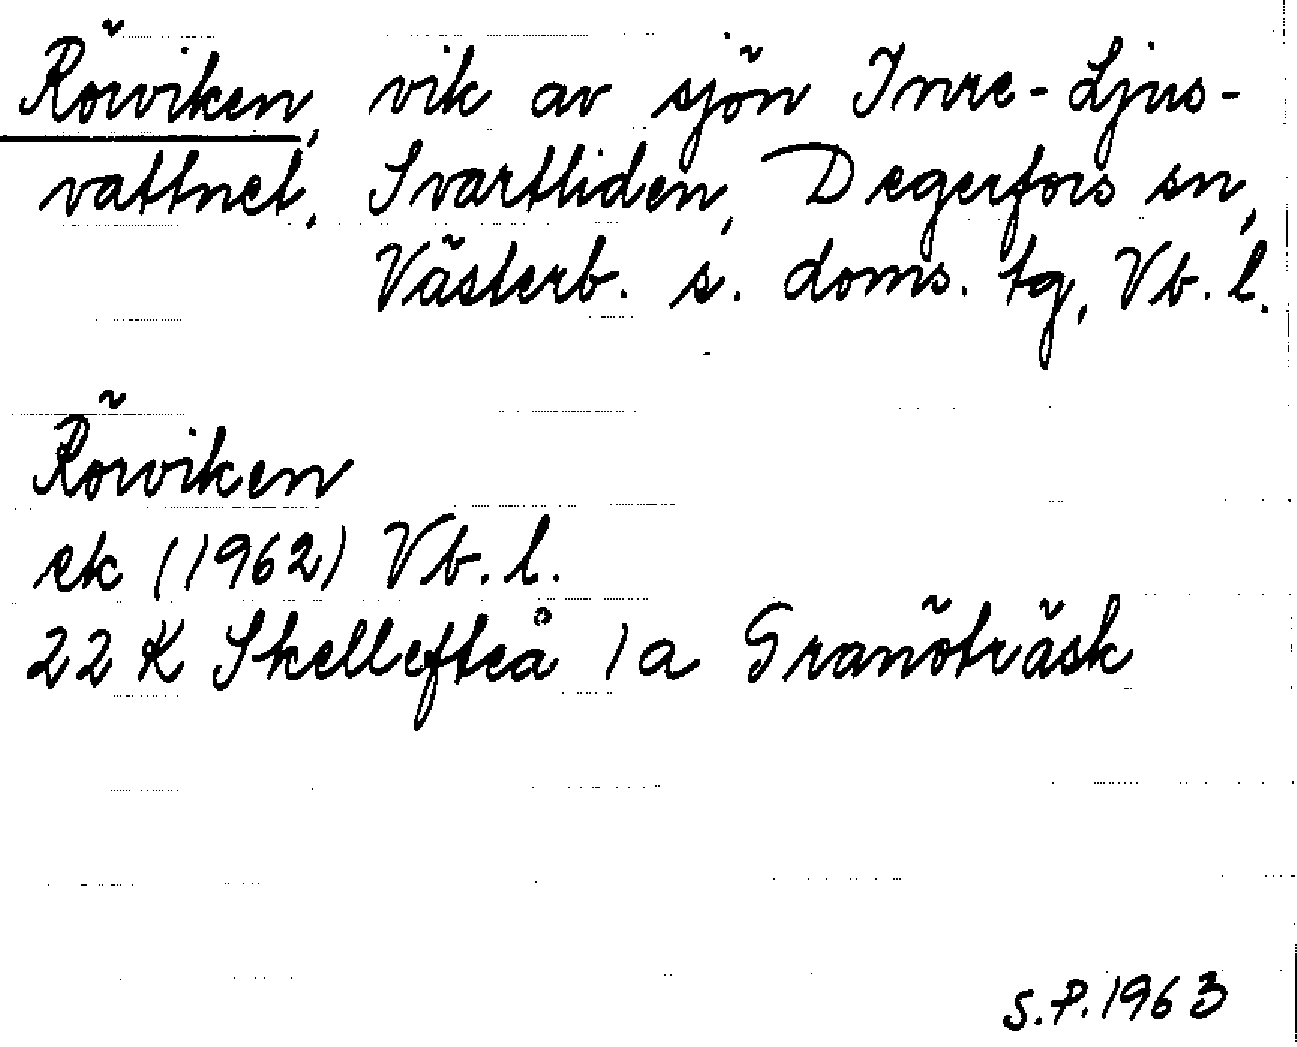 Rörviken, vik av sjön Inre-Ljus-
vattnet, Svartliden, Degerfors sn,
Västerb. s. doms. tg, Vb. l.
Rörviken
ek (1962) Vb. l.
22 K Skellefteå 1a Granöträsk
S.P. 1963